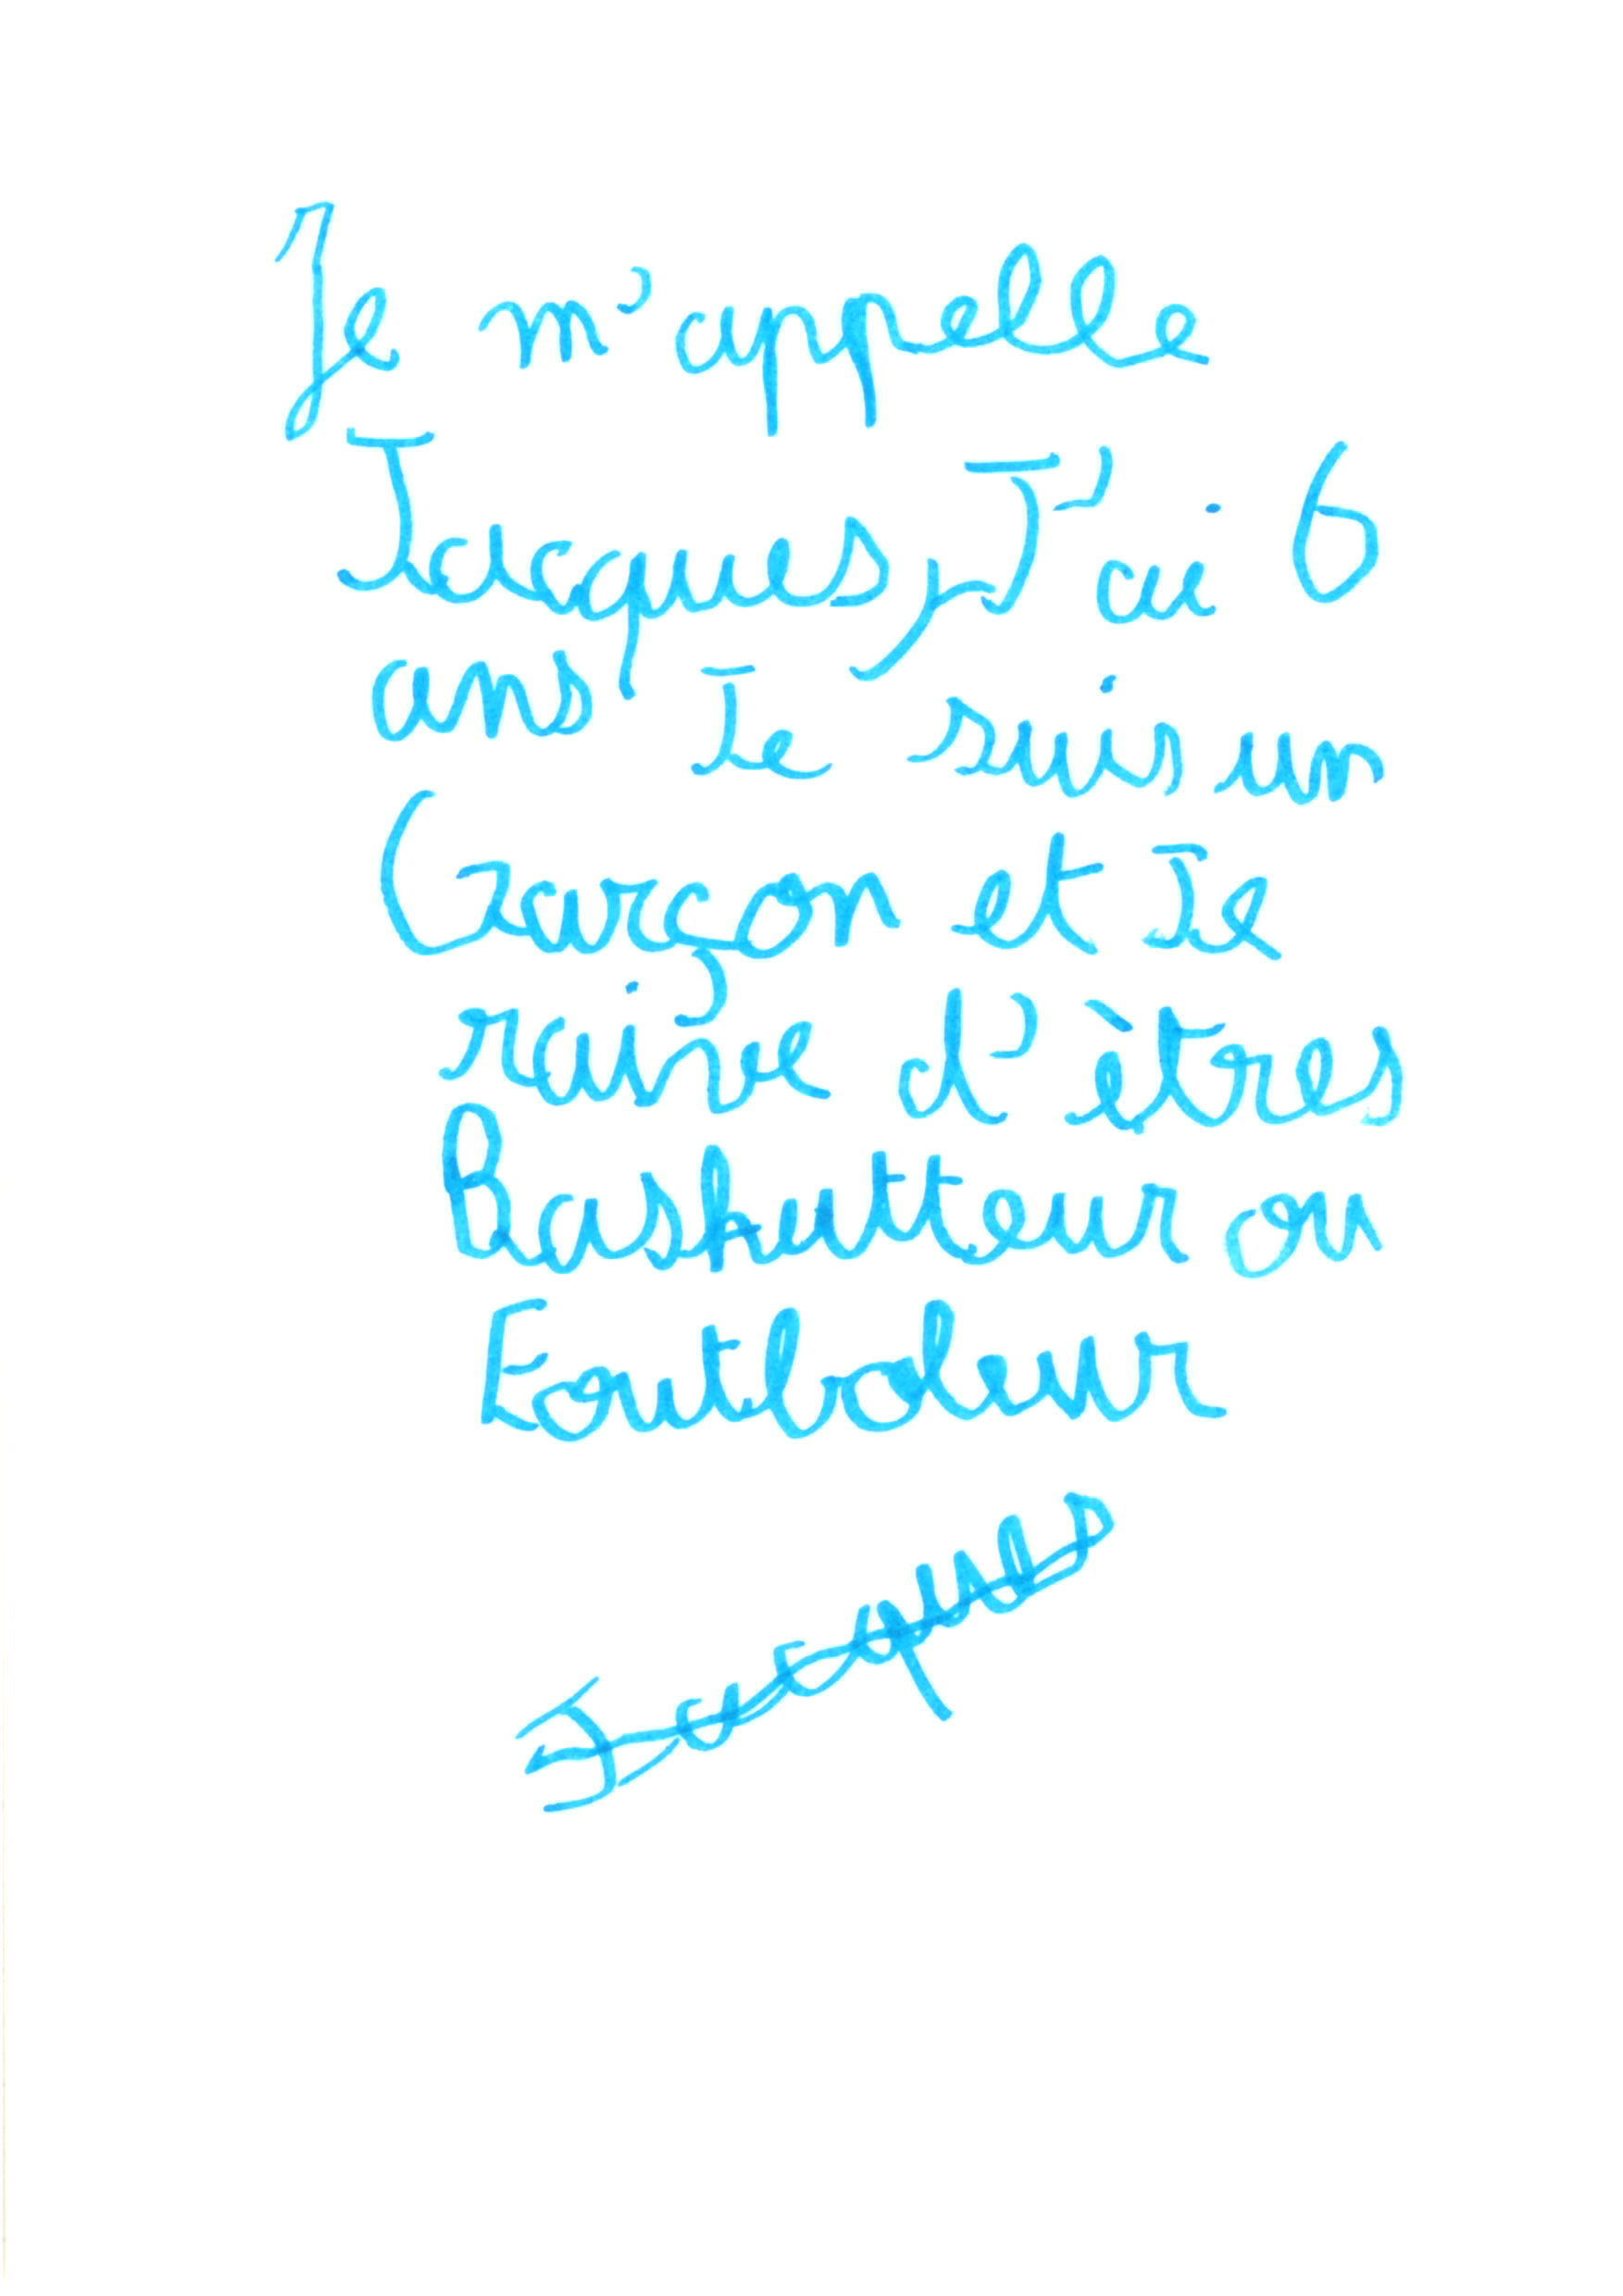 Je m'appelle
Jacques, J'ai 6
ans Je suis un
Garçon et Je
raive d'ètres
Baskutteur ou
Foutboleur
Jacques